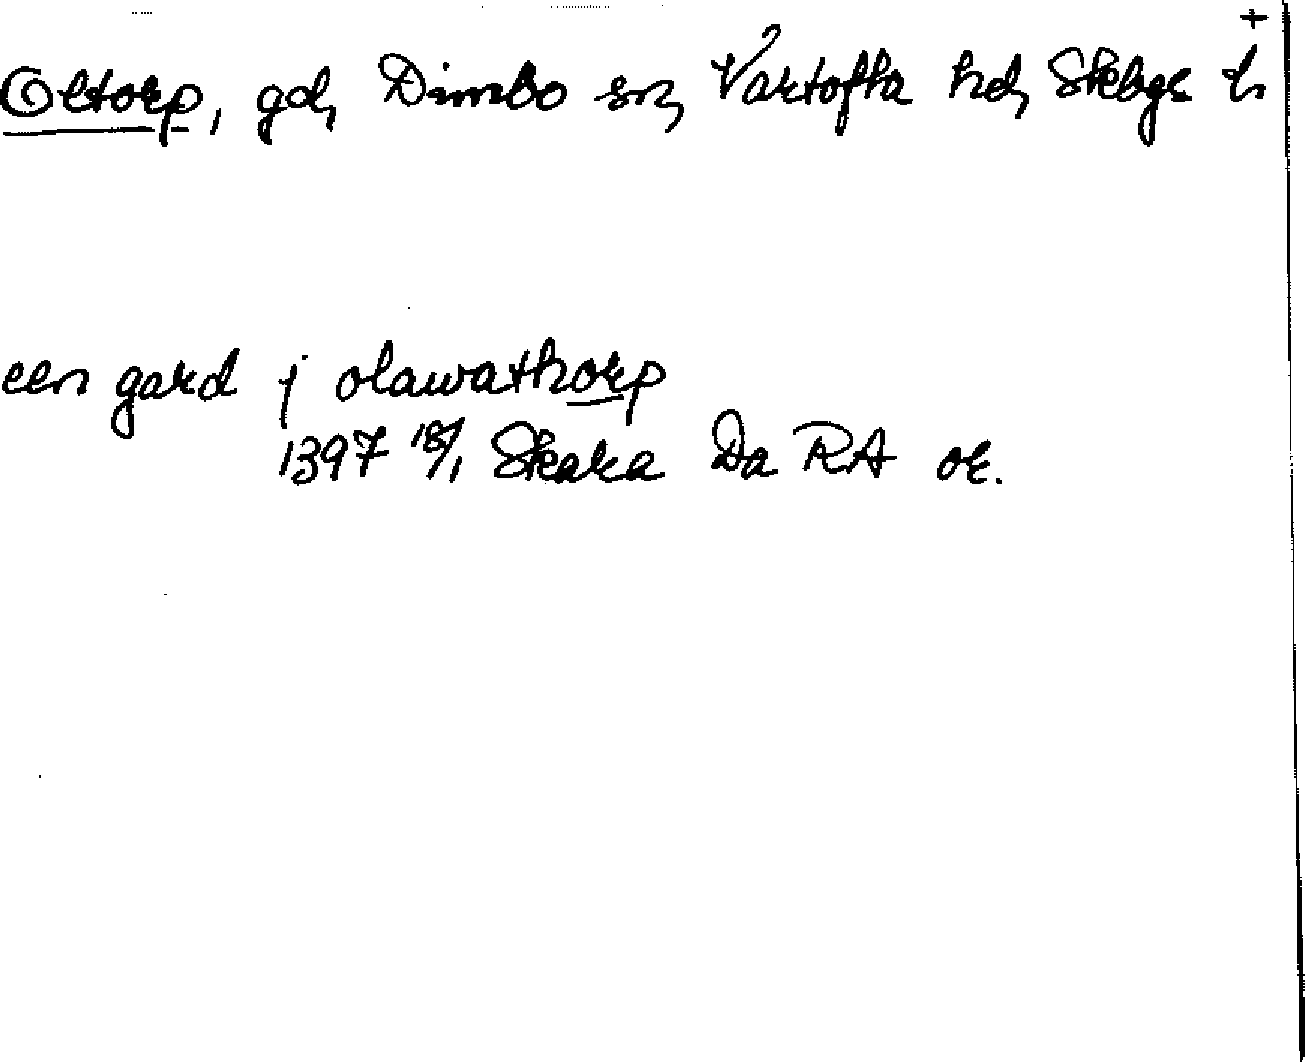 +
Oltorp, gd, Dimbo sn, Vartofta hd, Skbgs l.
een gard j olawathorp
1397 18/1 Skara Da RA or.